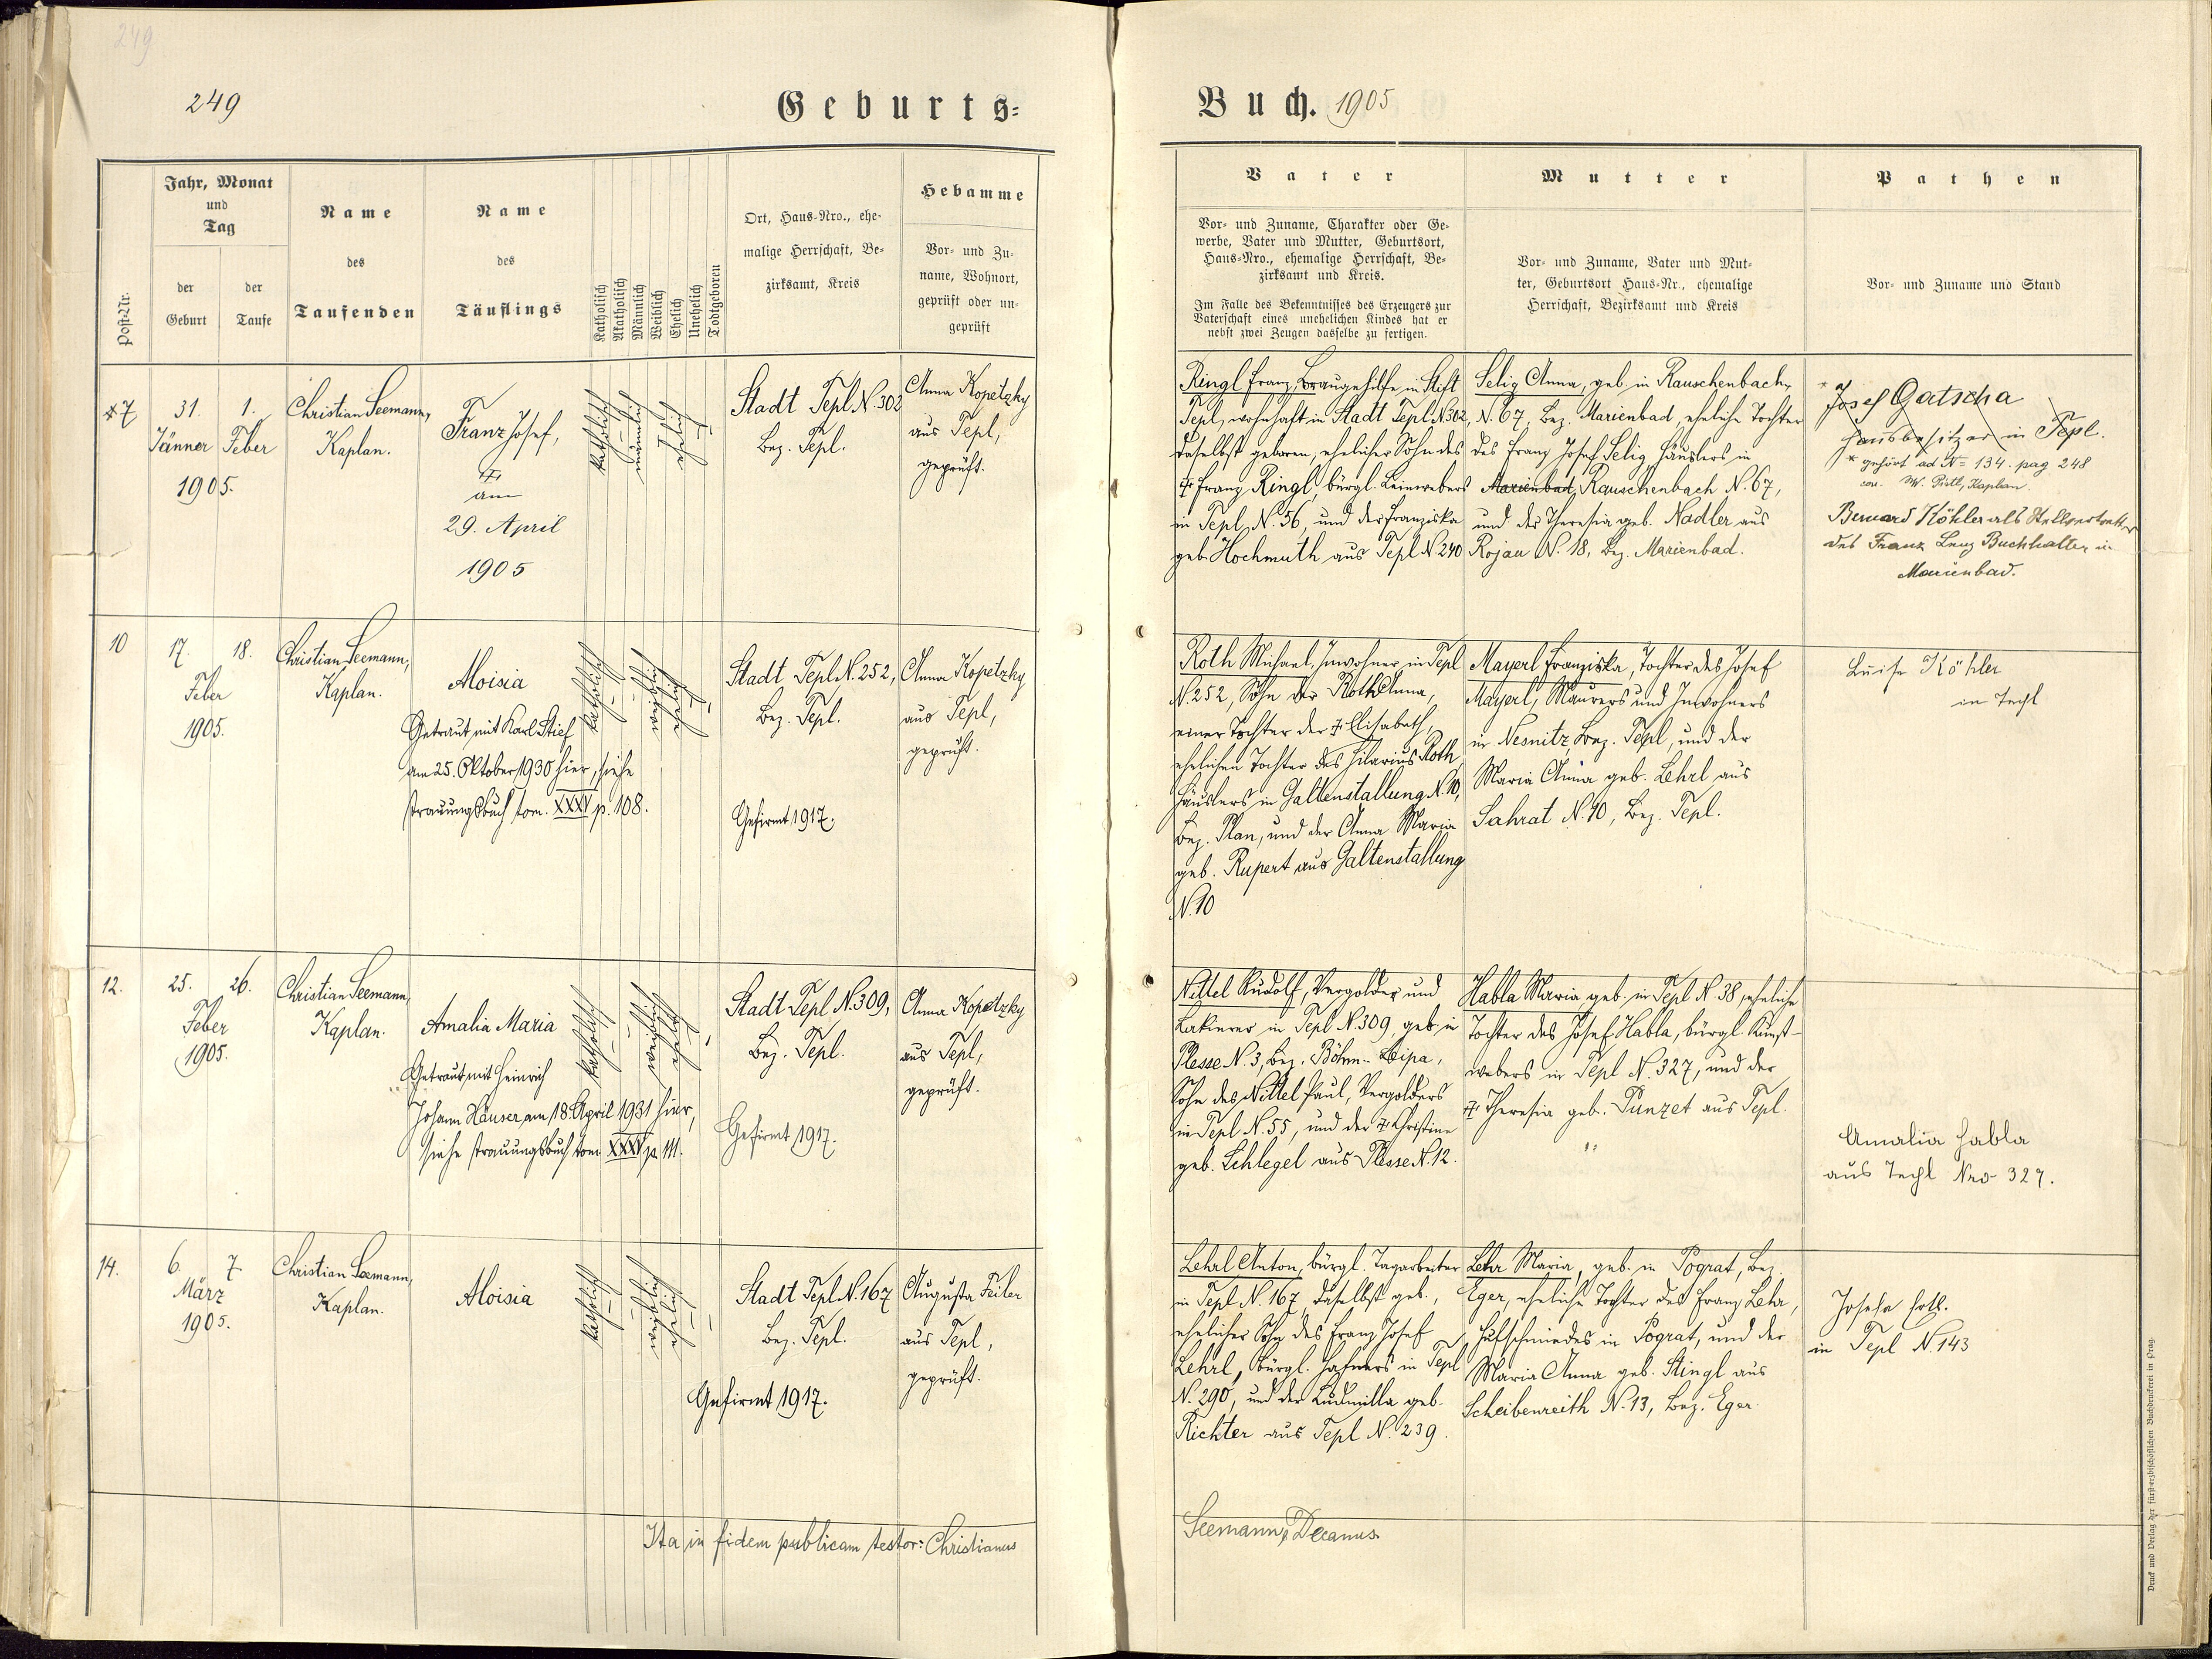 249
249
Geburts=
Post-Nr.
Jahr, Monat
und
Tag
der
Geburt
der
Taufe
Name
des
Taufenden
Name
des
Täuflings
Katholisch
Akatholisch
Männlich
Weiblich
Ehelich
Unehelich
Todtgeboren
Ort, Haus-Nro., ehe-
malige Herrschaft, Be-
zirksamt, Kreis
Hebamme
Vor- und Zu-
name, Wohnort,
geprüft oder un-
geprüft
*7
31.
1.
Jänner
Feber
1905.
Christian Seemann,
Kaplan.
Franz Josef,
†
am
29. April
1905
katholisch
männlich
ehelich
Stadt Tepl N. 302
Bez. Tepl.
Anna Kopetzky
aus Tepl,
geprüft.
10
17.
18.
Feber
1905.
Christian Seemann,
Kaplan.
Aloisia
Getraut mit Karl Stief
am 25. Oktober 1930 hier, siehe
Trauungsbuch tom. XXXV p. 108.
katholisch
weiblich
ehelich
Stadt Tepl N. 252,
Bez. Tepl.
Gefirmt 1917.
Anna Kopetzky
aus Tepl,
geprüft.
12.
25.
26.
Feber
1905.
Christian Seemann,
Kaplan.
Amalia Maria
Getraut mit Heinrich
Johann Häuser am 18. April 1931 hier,
siehe Trauungsbuch tom. XXXV p. 111.
katholisch
weiblich
ehelich
Stadt Tepl N. 309,
Bez. Tepl.
Gefirmt 1917.
Anna Kopetzky
aus Tepl,
geprüft.
14.
6.
7.
März
1905.
Christian Seemann,
Kaplan.
Aloisia
katholisch
weiblich
ehelich
Stadt Tepl N. 167
Bez. Tepl.
Gefirmt 1917.
Augusta Feiler
aus Tepl,
geprüft.
Ita in fidem publicam testor: Christianus
Buch. 1905
Vater
Vor- und Zuname, Charakter oder Ge-
werbe, Vater und Mutter, Geburtsort,
Haus-Nro., ehemalige Herrschaft, Be-
zirksamt und Kreis.
Im Falle des Bekenntnisses des Erzeugers zur
Vaterschaft eines unehelichen Kindes hat er
nebst zwei Zeugen dasselbe zu fertigen.
Mutter
Vor- und Zuname, Vater und Mut-
ter, Geburtsort Haus-Nr., ehemalige
Herrschaft, Bezirksamt und Kreis
Pathen
Vor- und Zuname und Stand
Ringl Franz, Braugehilfe in Stift
Tepl, wohnhaft in Stadt Tepl N. 302,
daselbst geboren, ehelicher Sohn des
† Franz Ringl, bürgl. Leinwebers
in Tepl N. 56, und der Franziska
geb. Hochmuth aus Tepl N. 240
Selig Anna, geb. in Rauschenbach,
N. 67, Bez. Marienbad, eheliche Tochter
des Franz Josef Selig Häuslers in
Marienbad, Rauschenbach N. 67,
und der Theresia geb. Nadler aus
Rojau N. 18, Bez. Marienbad.
* Josef Gatscha
Hausbesitzer in Tepl.
* gehört ad N= 134. pag 248
Kaplan
Bernard Köhler als Stellvertreter
des Franz Lenz Buchhalter in
Marienbad.
Roth Michael, Inwohner in Tepl
N. 252, Sohn der Roth Anna,
einer Tochter der † Elisabeth,
ehelichen Tochter des Hilarius Roth,
Häuslers in Galtenstallung N. 10,
Bez. Plan, und der Anna Maria
geb. Rupert aus Galtenstallung
N. 10
Mayerl Franziska, Tochter des Josef
Mayerl, Maurers und Inwohners
in Nesnitz, Bez. Tepl, und der
Maria Anna geb. Lehrl aus
Sahrat N. 10, Bez. Tepl.
Luise Köhler
in Tepl
Nittel Rudolf, Vergolder und
Lakierer in Tepl N. 309, geb. in
Plesse N. 3, Bez. Böhm.-Leipa,
Sohn des Nittel Paul, Vergolders
in Tepl N. 55, und der † Christine
geb. Schlegel aus Plesse N. 12.
Habla Maria geb. in Tepl N. 38, eheliche
Tochter des Josef Habla, bürgl. Kunst-
webers in Tepl N. 327, und der
† Theresia geb. Punzet aus Tepl.
Amalia Habla
aus Tepl Nro 327.
Lehrl Anton, bürgl. Tagarbeiter
in Tepl N. 167, daselbst geb.,
ehelicher Sohn des Franz Josef
Lehrl, bürgl. Hafners in Tepl
N. 290, und der Ludmilla geb.
Richter aus Tepl N. 239.
Lehr Maria, geb. in Pograt, Bez.
Eger, eheliche Tochter des Franz Lehr,
Hufschmiedes in Pograt, und der
Maria Anna geb. Stingl aus
Scheibenreith N. 13, Bez. Eger.
in Tepl N. 143
Seemann, Decanus
Druck und Verlag der fürst-erzbischöflichen Buchdruckerei in Prag.